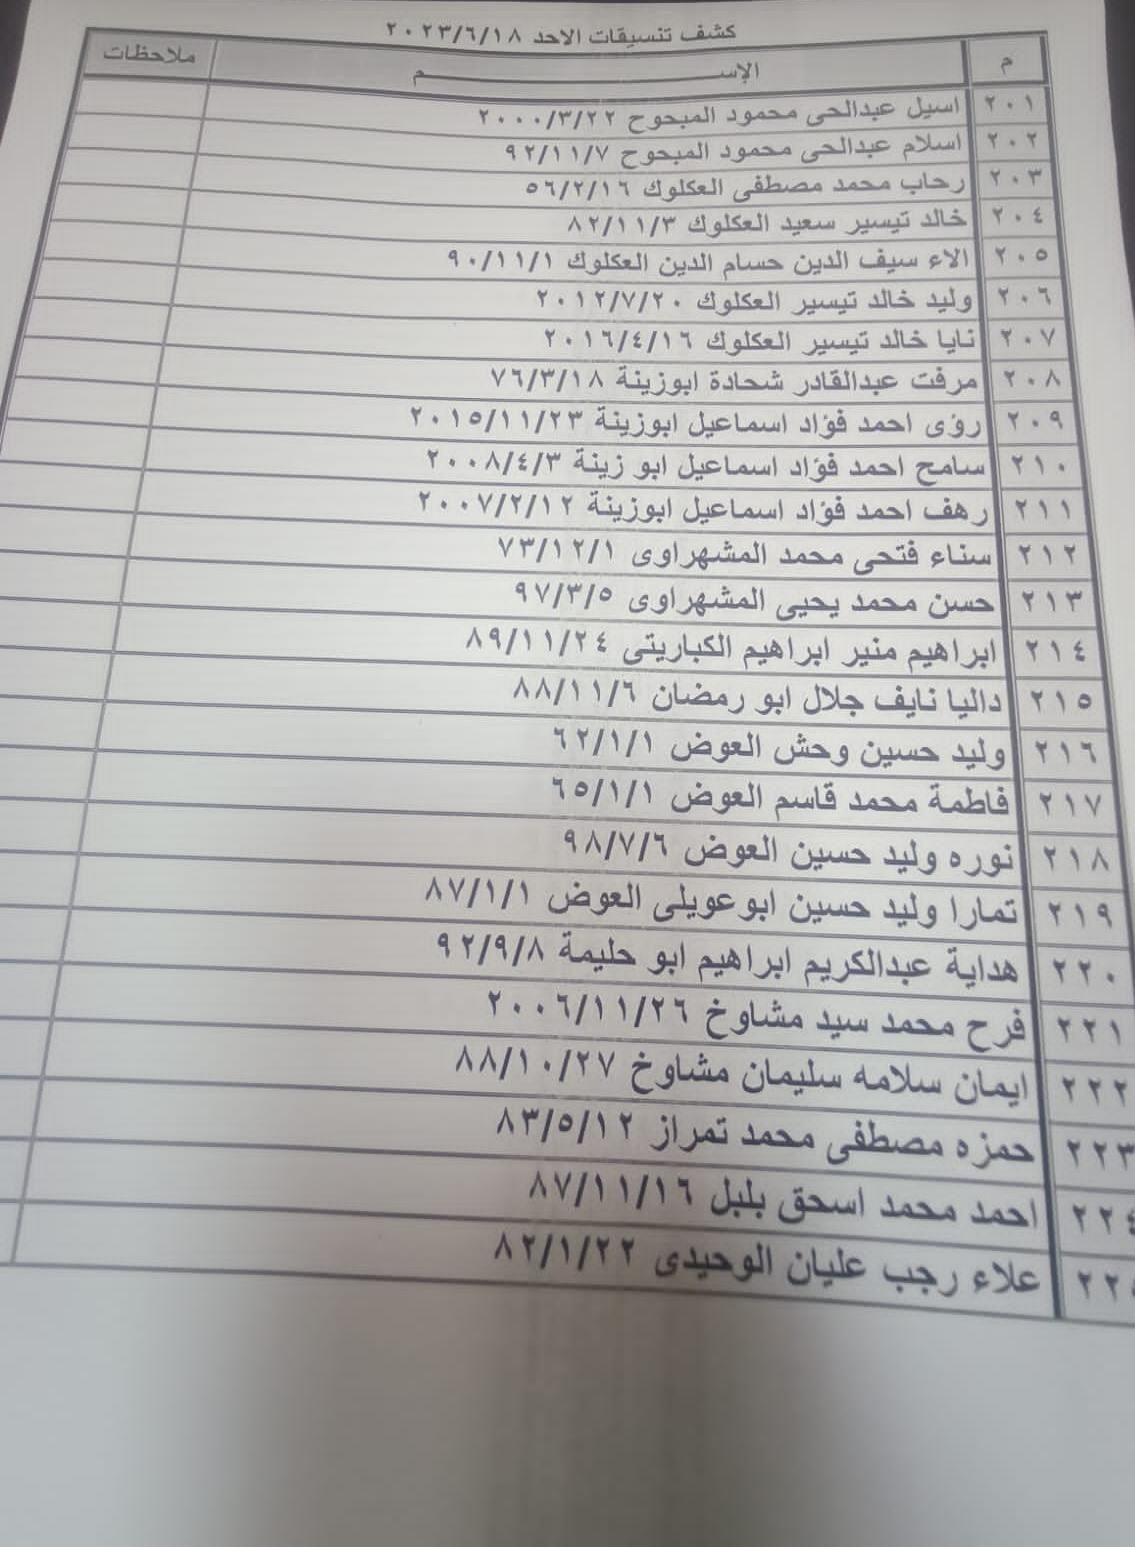 كشف تنسيقات الاحد ٢٠٢٣/٦/١٨
م الإســـــــــم ملاحظات
٢٠١ اسيل عبدالحى محمود المبحوح ٢٠٠٠/٣/٢٢
٢٠٢ اسلام عبدالحى محمود المبحوح ٩٢/١١/٧
٢٠٣ رحاب محمد مصطفى العكلوك ٥٦/٢/١٦
٢٠٤ خالد تيسير سعيد العكلوك ٨٢/١١/٣
٢٠٥ الاء سيف الدين حسام الدين العكلوك ٩٠/١١/١
٢٠٦ وليد خالد تيسير العكلوك ٢٠١٢/٧/٢٠
٢٠٧ نايا خالد تيسير العكلوك ٢٠١٦/٤/١٦
٢٠٨ مرفت عبدالقادر شحادة ابوزينة ٧٦/٣/١٨
٢٠٩ رؤى احمد فؤاد اسماعيل ابوزينة ٢٠١٥/١١/٢٣
٢١٠ سامح احمد فؤاد اسماعيل ابو زينة ٢٠٠٨/٤/٣
٢١١ رهف احمد فؤاد اسماعيل ابوزينة ٢٠٠٧/٢/١٢
٢١٢ سناء فتحى محمد المشهراوى ٧٣/١٢/١
٢١٣ حسن محمد يحيى المشهراوى ٩٧/٣/٥
٢١٤ ابراهيم منير ابراهيم الكباريتى ٨٩/١١/٢٤
٢١٥ داليا نايف جلال ابو رمضان ٨٨/١١/٦
٢١٦ وليد حسين وحش العوض ٦٢/١/١
٢١٧ فاطمة محمد قاسم العوض ٦٥/١/١
٢١٨ نوره وليد حسين العوض ٩٨/٧/٦
٢١٩ تمارا وليد حسين ابوعويلى العوض ٨٧/١/١
٢٢٠ هداية عبدالكريم ابراهيم ابو حليمة ٩٢/٩/٨
٢٢١ فرح محمد سيد مشاوخ ٢٠٠٦/١١/٢٦
٢٢٢ ايمان سلامه سليمان مشاوخ ٨٨/١٠/٢٧
٢٢٣ حمزه مصطفى محمد تمراز ٨٣/٥/١٢
٢٢٤ احمد محمد اسحق بلبل ٨٧/١١/١٦
علاء رجب عليان الوحيدى ٨٢/١/٢٢